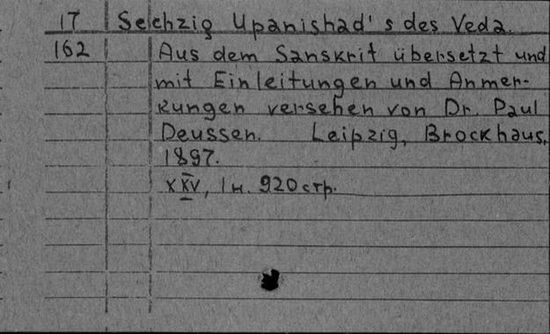 17 Sechzig Upanishad's des Veda.
162 Aus dem Sanskrit übersetzt und
mit Einleitungen und Anmer-
kungen versehen von Dr. Paul
Deussen. Leipzig, Brockhaus,
1897.
XXV, 1 н. 920 стр.